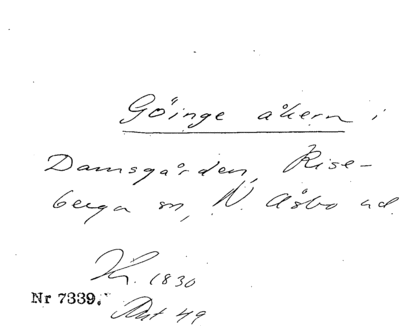 Göinge åkern i
Damsgården, Rise-
berga sn, N. Åsbo hd.
Kr. 1830
Nr 7339.
Ant 49